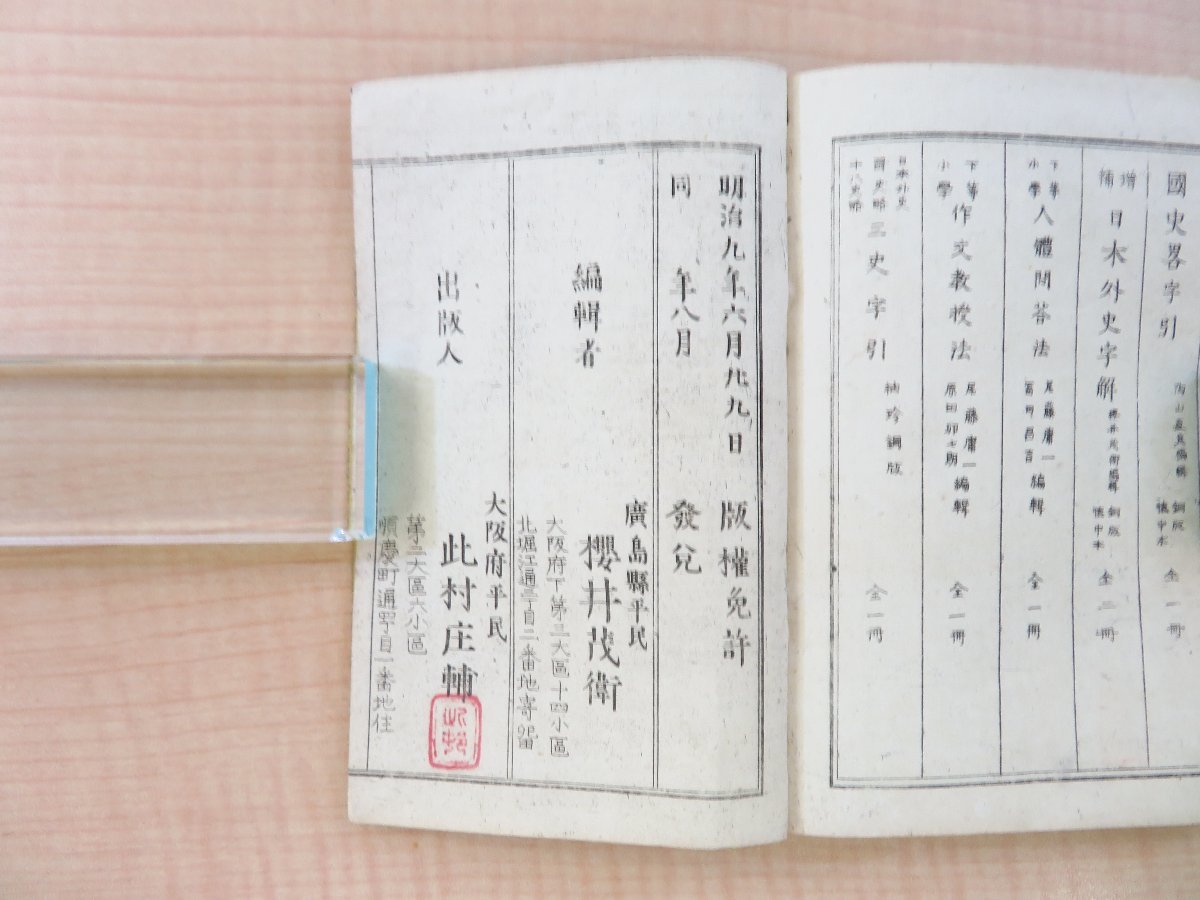 國史畧字引 銅版 懷中本 全一冊
増補 日本外史字解 櫻井茂衛編輯 銅版 懷中本 全二冊
下等小學 人體問答法 尾藤庸一 編輯 全一冊
下等小學 作文教授法 尾藤庸一 編輯 全一冊
日本外史 國史略 十八史略 三史字引 袖珍銅版 全一冊
明治九年六月廿九日 版權免許
同 年八月 發兌
廣島縣平民
編輯者 櫻井茂衛
大阪府下第三大區十四小區
北堀江通三丁目二番地寄留
大阪府平民
出版人 此村庄輔
第三大區六小區
順慶町通四丁目一番地住
此村